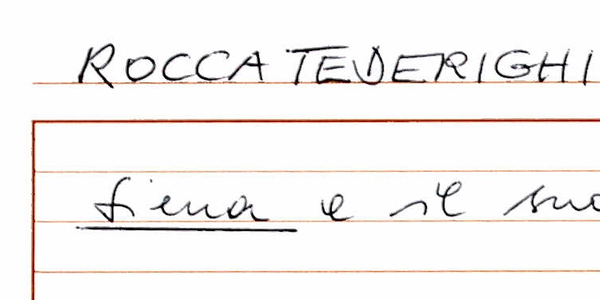 ROCCATEDERIGHI
Siena e il suo